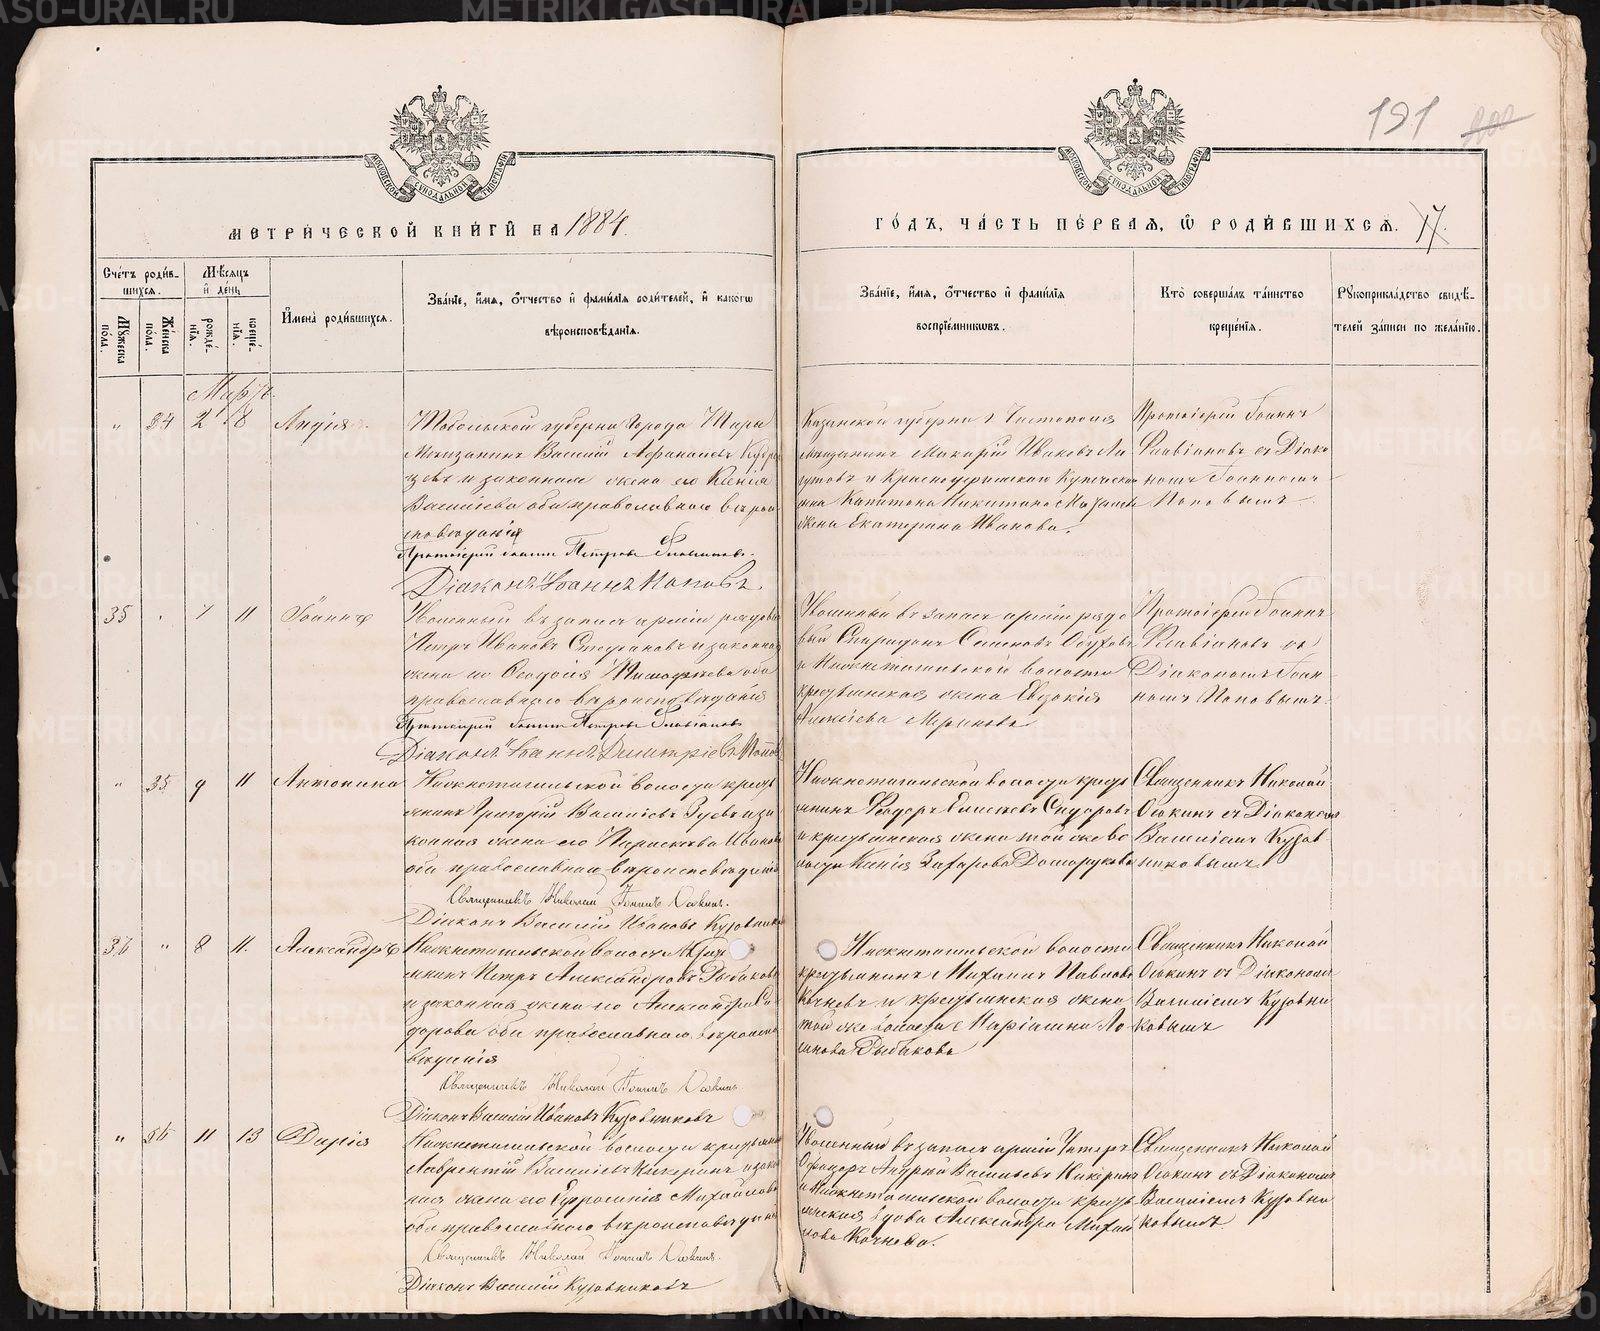 МЕТРИЧЕСКОЙ КНИГИ НА 1884
ГОДЪ, ЧАСТЬ ПЕРВАЯ, Ѡ РОДИВШИХСЯ. 17.
191
Счетъ родив-
шихся.
Мѣсяцъ
и день
Мужеска
пола.
Женска
пола.
рожде-
нія.
креще-
нія.
Имена родившихся.
Званіе, имя, отчество и фамилія родителей, и какогѡ
вѣроисповѣданія.
Званіе, имя, отчество и фамилія
воспріемниковъ.
Кто совершалъ таинство
крещенія.
Рукоприкладство свидѣ-
телей записи по желанію.
Мартъ
„ 34 2 8 Лидія
Тобольской губерніи города
Мѣщанинъ Василій Афанасіевъ
и законная жена его Ксенія
Василіева оба православнаго вѣрои
сповѣданія
Протоіерей Іоаннъ Петровъ Флавіановъ.
Діаконъ Іоаннъ Поповъ
Казанской губерніи г. Чистополя
Мѣщанинъ Макарій Ивановъ
и Красноуфимскаго Купческаго
Капитона Никитина
жена Екатерина Иванова.
Протоіерей Іоаннъ
Флавіановъ съ Діако
номъ Іоанномъ
Поповымъ
35 7 11 Іоаннъ
Уволенный въ запасъ арміи рядовой
Петръ Ивановъ Стефановъ и законная
жена его Ѳеодосія Тимоѳеева оба
православнаго вѣроисповѣданія
Протоіерей Іоаннъ Петровъ Флавіановъ
Діаконъ Іоаннъ Димитріевъ Поповъ
Уволенный въ запасъ арміи рядо
вый Спиридонъ Семеновъ
и Нижнетагильской волости
крестьянская жена Евдокія
Алексіева
Протоіерей Іоаннъ
Флавіановъ съ
Діакономъ Іоан
номъ Поповымъ
„ 35 9 11 Антонина
Нижнетагильской волости кресть
янинъ Григорій Василіевъ и за
конная жена его Параскева Иванова
оба православнаго вѣроисповѣданія
Священникъ Николай Іоаннъ Оскинъ.
Діаконъ Василій Ивановъ Кузовниковъ
Нижнетагильской волости кресть
янинъ Ѳеодоръ Сидоровъ
и крестьянская жена той же во
лости Ксенія Захарова
Священникъ Николай
Оскинъ съ Діакономъ
Василіемъ Кузов
никовымъ
36 „ 8 11. Александръ
Нижнетагильской волости Крест
янинъ Петръ Александровъ Рыбаковъ
и законная жена его Александра Си
дорова оба православнаго вѣроиспо
вѣданія
Священникъ Николай Іоаннъ Оскинъ
Діаконъ Василій Ивановъ Кузовниковъ
Нижнетагильской волости
крестьянинъ Михаилъ Павловъ
Качневъ и крестьянская жена
той же волости Маріамна Ло
гинова Рыбакова
Священникъ Николай
Оскинъ съ Діакономъ
Василіемъ Кузовни
ковымъ
„ 36 11 13 Дарія
Нижнетагильской волости крестьянинъ
Лаврентій Василіевъ и закон
ная жена его Евфросинія Михайлова
оба православнаго вѣроисповѣданія
Священникъ Николай Іоаннъ Оскинъ.
Діаконъ Василій Кузовниковъ
Уволенный въ запасъ арміи Унтеръ
Офицеръ Андрей Василіевъ
и Нижнетагильской волости кресть
янская вдова Александра Михай
лова Качнева.
Священникъ Николай
Оскинъ съ Діакономъ
Василіемъ Кузовни
ковымъ
METRIKI.GASO-URAL.RU